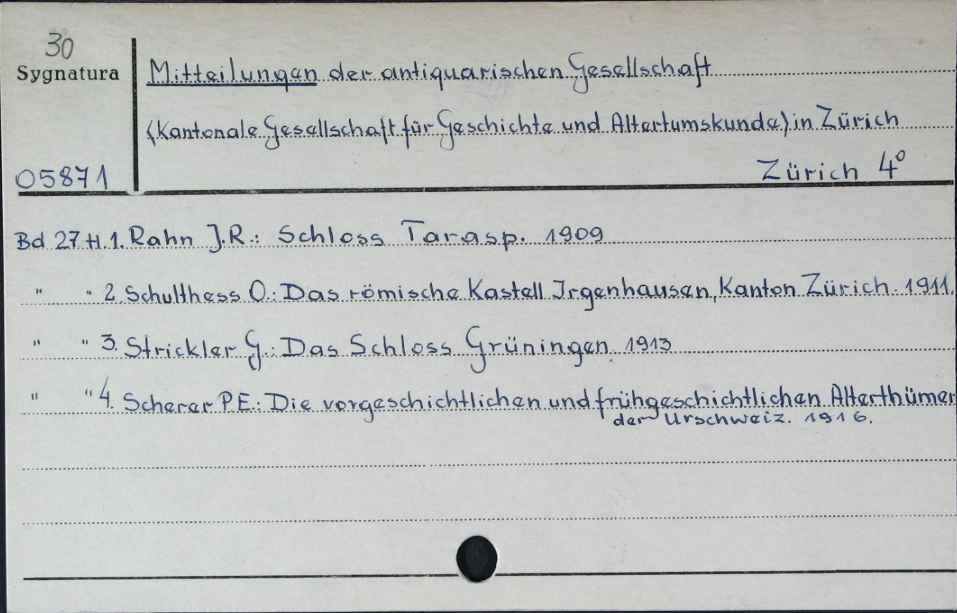 30
Sygnatura
Mitteilungen der antiquarischen Gesellschaft
(Kantonale Gesellschaft für Geschichte und Altertumskunde) in Zürich
05871
Zürich 4°
Bd 27 H.1. Rahn J.R.: Schloss Tarasp. 1909
" " 2. Schulthess O.: Das römische Kastell Irgenhausen, Kanton Zürich. 1911.
" " 3. Strickler G.: Das Schloss Grüningen. 1913
" " 4. Scherer P.E.: Die vorgeschichtlichen und frühgeschichtlichen Alterthümer
der Urschweiz. 1916.